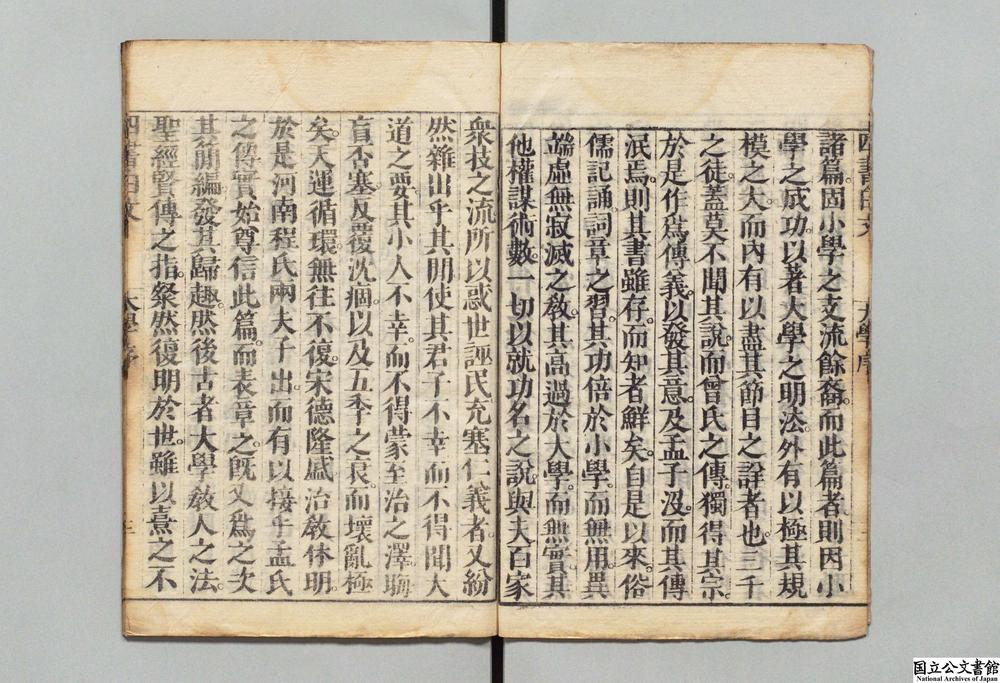 諸篇。固小學之支流餘裔。而此篇者則因小
學之成功。以著大學之明法。外有以極其規
模之大。而內有以盡其節目之詳者也。三千
之徒。蓋莫不聞其說。而曾氏之傳獨得其宗。
於是作爲傳義。以發其意。及孟子沒。而其傳
泯焉。則其書雖存。而知者鮮矣。自是以來。俗
儒記誦詞章之習。其功倍於小學。而無用。異
端虛無寂滅之敎。其高過於大學。而無實。其
他權謀術數。一切以就功名之說。與夫百家
衆技之流所以惑世誣民充塞仁義者。又紛
然雜出乎其閒使其君子不幸而不得聞大
道之要其小人不幸。而不得蒙至治之澤。晦
盲否塞。反覆沈痼。以及五季之衰。而壞亂極
矣。天運循環無往不復。宋德隆盛治敎休明。
於是河南程氏兩夫子出。而有以接乎孟氏
之傳。實始尊信此篇。而表章之。旣又爲之次
其簡編。發其歸趣。然後古者大學敎人之法。
聖經賢傳之指。粲然復明於世。雖以熹之不
四書白文
大學序
国立公文書館
National Archives of Japan